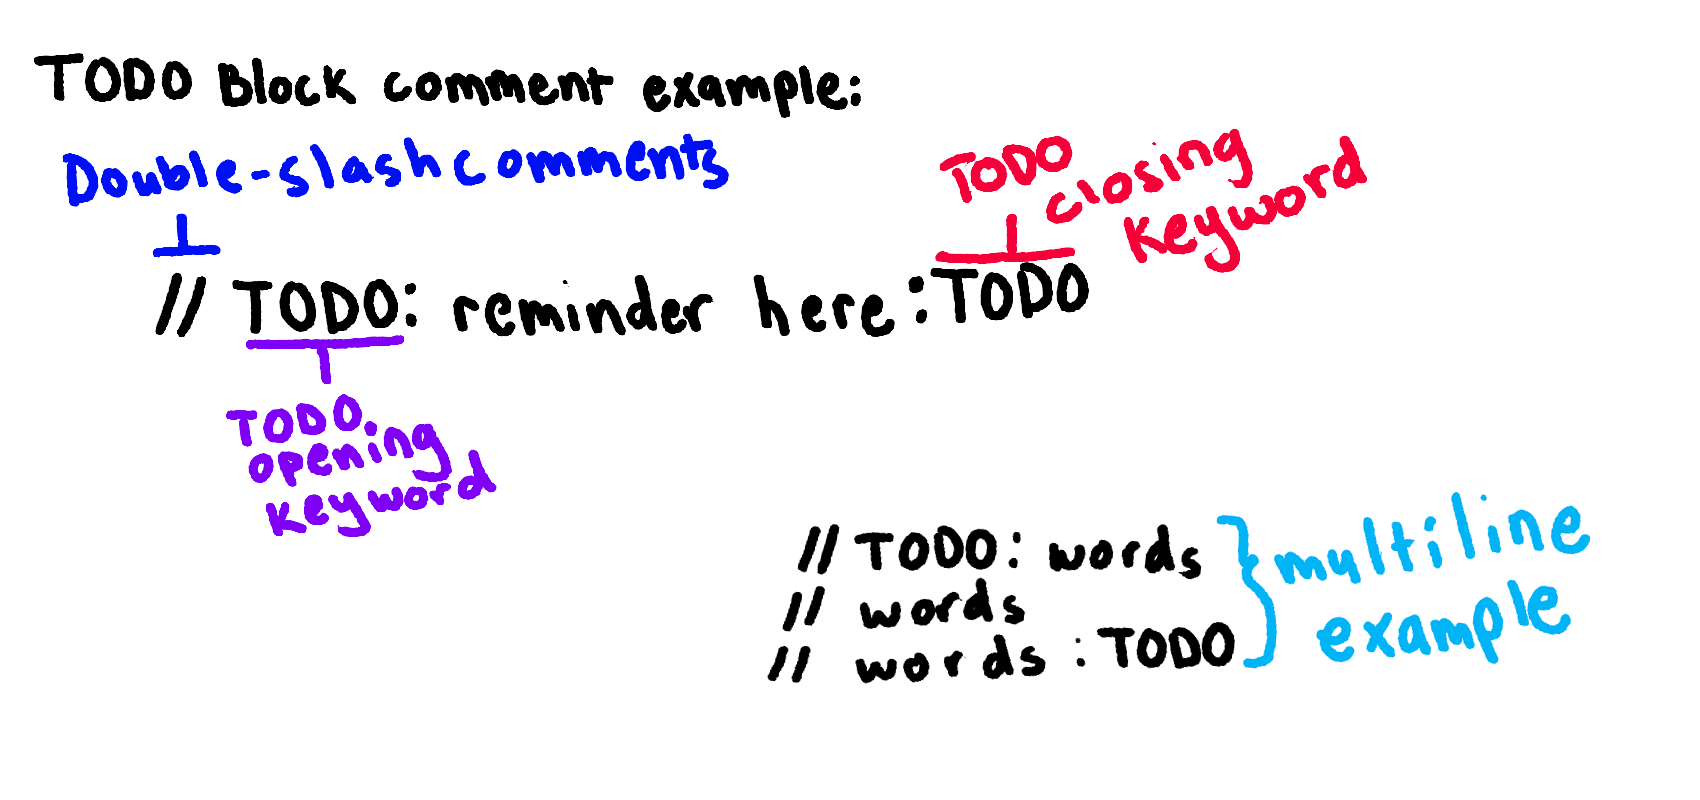 TODO Block comment example:
Double-slash comments
TODO
closing
keyword
// TODO: reminder here :TODO
TODO
opening
keyword
// TODO: words
// words
// words :TODO
multiline
example